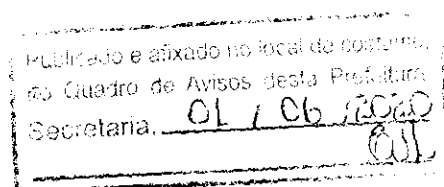 Publicado e afixado no local do costume,
no Quadro de Avisos desta Prefeitura
Secretaria, 01 / 06 / 2020